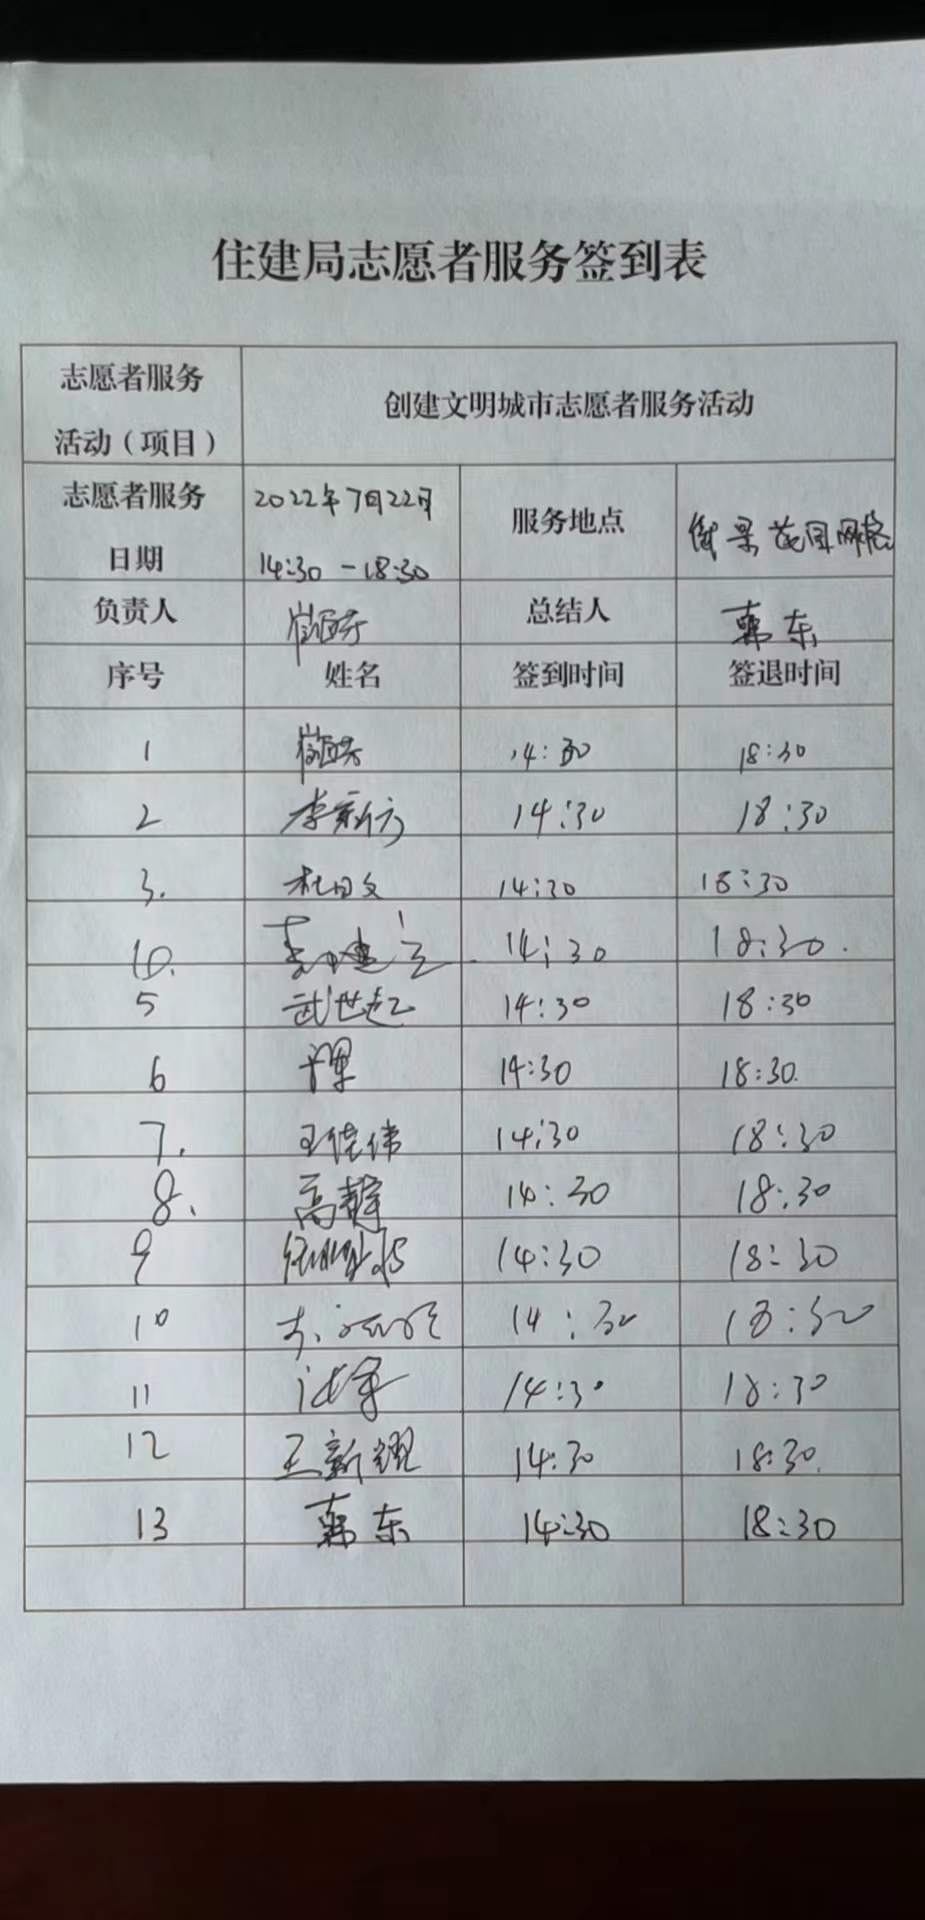 住建局志愿者服务签到表
志愿者服务
活动（项目）
创建文明城市志愿者服务活动
志愿者服务
日期
2022年7月22日
14:30-18:30
服务地点
景花园网格
负责人
总结人
韩东
序号 姓名 签到时间 签退时间
1 14:30 18:30
2 李新方 14:30 18:30
3. 杜日文 14:30 18:30
14:30 18:30.
5 武世起 14:30 18:30
6 14:30 18:30.
7. 王佳伟 14:30 18:30
8. 高静 14:30 18:30
9 14:30 18:30
10 14:30 18:30
11 14:30 18:30
12 王新耀 14:30 18:30.
13 韩东 14:30 18:30